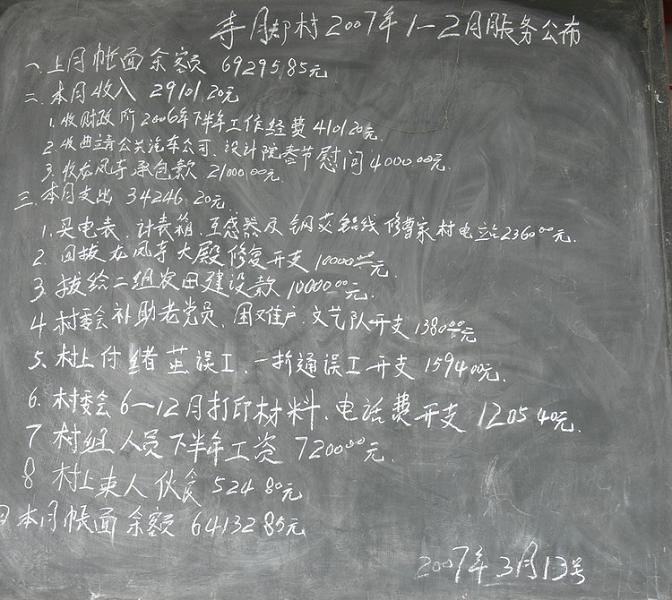 寺脚村2007年1-2月账务公布
一.上月帐面余额 69295.85元
二.本月收入 29101.20元
1.收财政所2006年下半年工作经费4101.20元.
2.收曲靖公共汽车公司、设计院春节慰问4000.00元.
3.收龙凤寺承包款 21000.00元.
三.本月支出 34246.20元.
1.买电表、计表箱、互感器及铜芡铝线修曹家村电站2360.00元.
2.回拨龙凤寺大殿修复开支10000.00元.
3.拨给二组农田建设款10000.00元.
4.村委会补助老党员、困难户、文艺队开支1380.00元
5.村上付绪茧误工、一折通误工开支1594.00元.
6.村委会6-12月打印材料、电话费开支1205.40元.
7村组人员下半年工资7200.00元.
8村上来人伙食524.80元
本月帐面余额 64132.85元
2007年3月13号